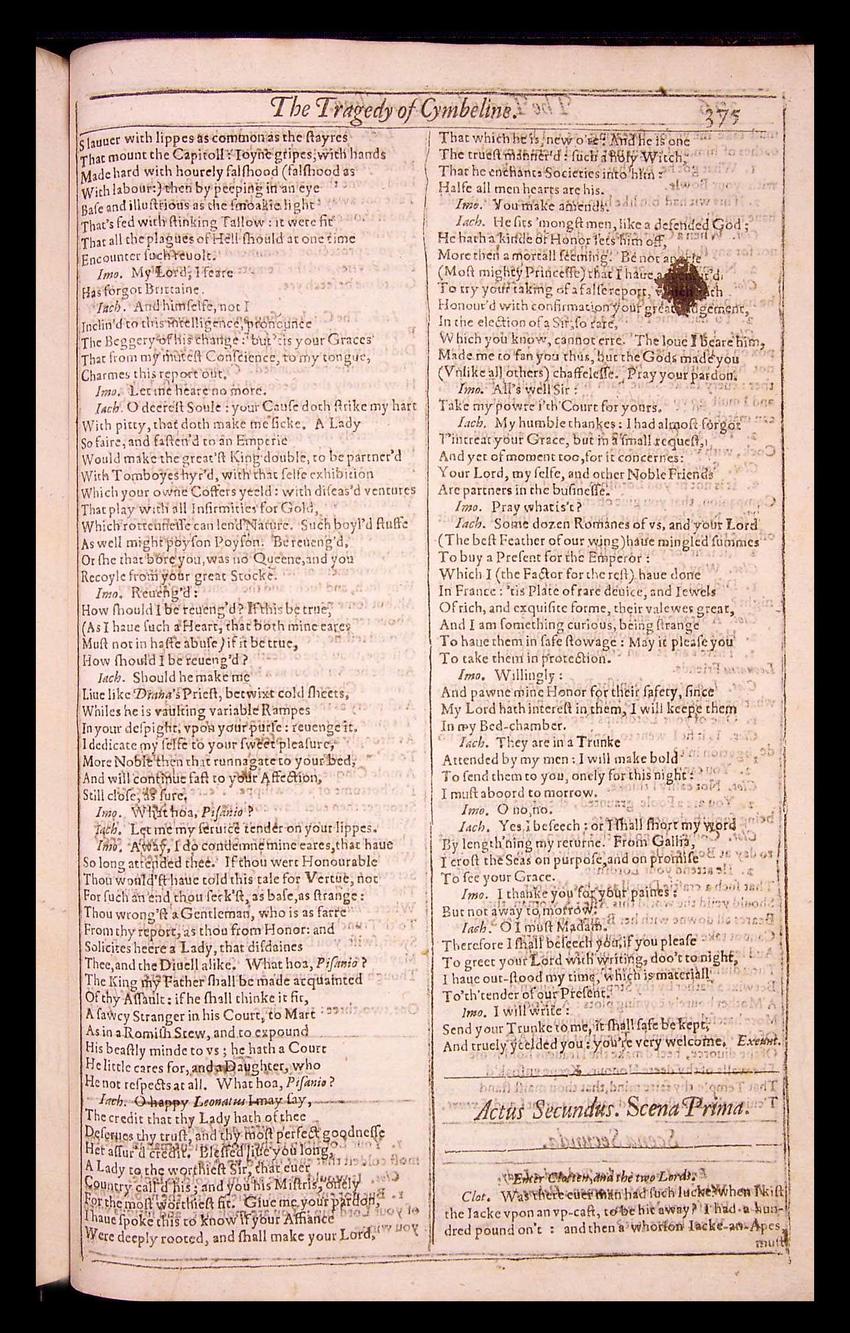 The Tragedy of Cymbeline.
375
Slauuer with lippes as common as the ſtayres
That mount the Capitoll: Ioyne gripes, with hands
Made hard with hourely falſhood (falſhood as
With labour:) then by peeping in an eye
Baſe and illuſtrious as the ſmoakie light
That's fed with ſtinking Tallow: it were fit
That all the plagues of Hell ſhould at one time
Encounter ſuch reuolt.
Imo. My Lord, I feare
Has forgot Brittaine.
Iach. And himſelfe, not I
Inclin'd to this intelligence, pronounce
The Beggery of his change: but 'tis your Graces
That from my muteſt Conſcience, to my tongue,
Charmes this report out.
Imo. Let me heare no more.
Iach. O deereſt Soule: your Cauſe doth ſtrike my hart
With pitty, that doth make me ſicke. A Lady
So faire, and faſten'd to an Emperie
Would make the great'ſt King double, to be partner'd
With Tomboyes hyr'd, with that ſelfe exhibition
Which your owne Coffers yeeld: with diſeas'd ventures
That play with all Infirmities for Gold,
Which rottenneſſe can lend Nature. Such boyl'd ſtuffe
As well might poyſon Poyſon. Be reueng'd,
Or ſhe that bore you, was no Queene, and you
Recoyle from your great Stocke.
Imo. Reueng'd:
How ſhould I be reueng'd? If this be true,
(As I haue ſuch a Heart, that both mine eares
Muſt not in haſte abuſe) if it be true,
How ſhould I be reueng'd?
Iach. Should he make me
Liue like Diana's Prieſt, betwixt cold ſheets,
Whiles he is vaulting variable Rampes
In your deſpight, vpon your purſe: reuenge it.
I dedicate my ſelfe to your ſweet pleaſure,
More Noble then that runnagate to your bed,
And will continue faſt to your Affection,
Still cloſe, as ſure.
Imo. What hoa, Piſanio?
Iach. Let me my ſeruice tender on your lippes.
Imo. Away, I do condemne mine eares, that haue
So long attended thee. If thou wert Honourable
Thou would'ſt haue told this tale for Vertue, not
For ſuch an end thou ſeek'ſt, as baſe, as ſtrange:
Thou wrong'ſt a Gentleman, who is as farre
From thy report, as thou from Honor: and
Solicites heere a Lady, that diſdaines
Thee, and the Diuell alike. What hoa, Piſanio?
The King my Father ſhall be made acquainted
Of thy Aſſault: if he ſhall thinke it fit,
A ſawcy Stranger in his Court, to Mart
As in a Romiſh Stew, and to expound
His beaſtly minde to vs; he hath a Court
He little cares for, and a Daughter, who
He not reſpects at all. What hoa, Piſanio?
Iach. O happy Leonatus I may ſay,
The credit that thy Lady hath of thee
Deſerues thy truſt, and thy moſt perfect goodneſſe
Her aſſur'd credit. Bleſſed liue you long,
A Lady to the worthieſt Sir, that euer
Country call'd his; and you his Miſtris, onely
For the moſt worthieſt fit. Giue me your pardon,
I haue ſpoke this to know if your Affiance
Were deeply rooted, and ſhall make your Lord,
That which he is, new o're: And he is one
The trueſt manner'd: ſuch a holy Witch,
That he enchants Societies into him:
Halfe all men hearts are his.
Imo. You make amends.
Iach. He ſits 'mongſt men, like a defended God;
He hath a kinde of Honor ſets him off,
More then a mortall ſeeming. Be not
(Moſt mighty Princeſſe) that I haue
To try your taking of a falſe report, which hath
Honour'd with confirmation your great Iudgement,
In the election of a Sir, ſo rare,
Which you know, cannot erre. The loue I beare him,
Made me to fan you thus, but the Gods made you
(Vnlike all others) chaffeleſſe. Pray your pardon.
Imo. All's well Sir:
Take my powre i'th'Court for yours.
Iach. My humble thankes: I had almoſt forgot
T'intreat your Grace, but in a ſmall requeſt,
And yet of moment too, for it concernes:
Your Lord, my ſelfe, and other Noble Friends
Are partners in the buſineſſe.
Imo. Pray what is't?
Iach. Some dozen Romanes of vs, and your Lord
(The beſt Feather of our wing) haue mingled ſummes
To buy a Preſent for the Emperor:
Which I (the Factor for the reſt) haue done
In France: 'tis Plate of rare deuice, and Iewels
Of rich, and exquiſite forme, their valewes great,
And I am ſomething curious, being ſtrange
To haue them in ſafe ſtowage: May it pleaſe you
To take them in protection.
Imo. Willingly:
And pawne mine Honor for their ſafety, ſince
My Lord hath intereſt in them, I will keepe them
In my Bed-chamber.
Iach. They are in a Trunke
Attended by my men: I will make bold
To ſend them to you, onely for this night:
I muſt aboord to morrow.
Imo. O no, no.
Iach. Yes I beſeech: or I ſhall ſhort my word
By length'ning my returne. From Gallia,
I croſt the Seas on purpoſe, and on promiſe
To ſee your Grace.
Imo. I thanke you for your paines:
But not away to morrow.
Iach. O I muſt Madam.
Therefore I ſhall beſeech you, if you pleaſe
To greet your Lord with writing, doo't to night,
I haue out-ſtood my time, which is materiall
To'th'tender of our Preſent.
Imo. I will write:
Send your Trunke to me, it ſhall ſafe be kept,
And truely yeelded you: you're very welcome. Exeunt.
Actus Secundus. Scena Prima.
Enter Clotten, and the two Lords.
Clot. Was there euer man had ſuch lucke? when I kiſt
the Iacke vpon an vp-caſt, to be hit away? I had a hun-
dred pound on't: and then a whorſon Iacke-an-Apes,
muſt